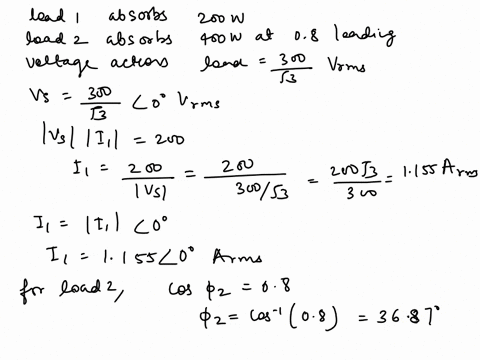 load 1 absorbs 200W
load 2 absorbs 400W at 0.8 leading
voltage across load = 300/√3 Vrms
Vs = 300/√3 ∠0° Vrms
|Vs| |I1| = 200
I1 = 200/|Vs| = 200/(300/√3) = 200√3/300 = 1.155 Arms
I1 = |I1| ∠0°
I1 = 1.155∠0° Arms
for load 2, cos φ2 = 0.8
φ2 = cos⁻¹(0.8) = 36.87°